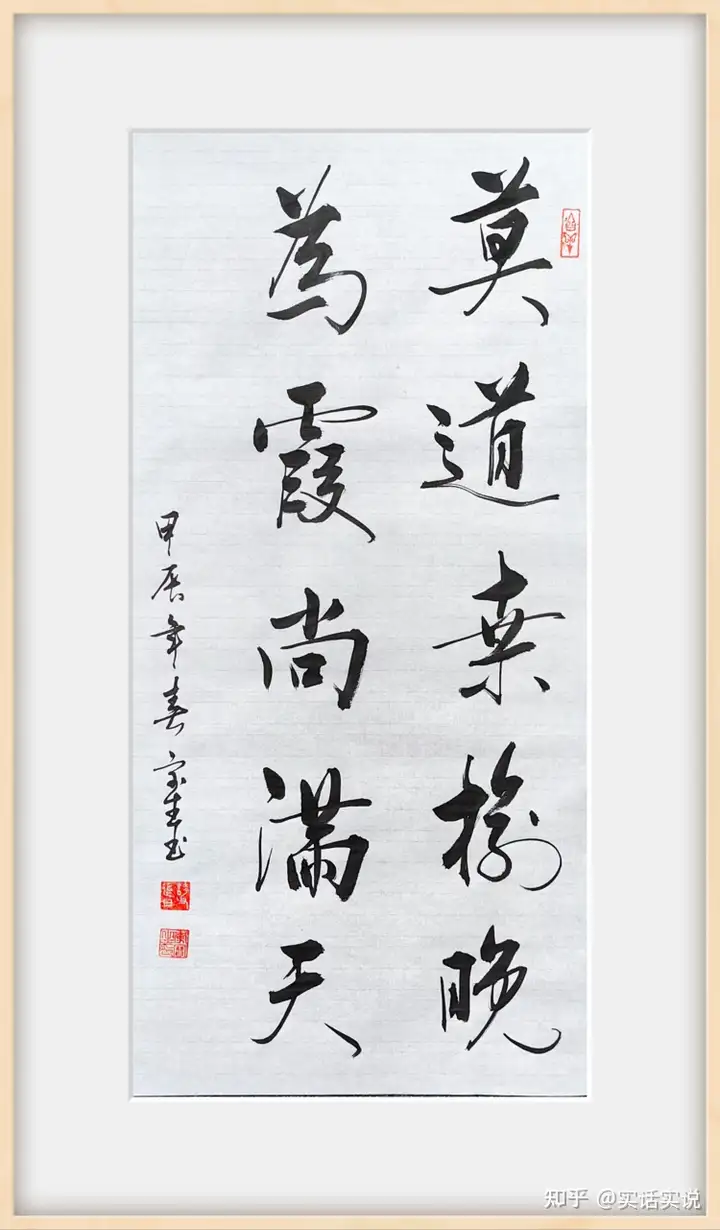 莫道桑榆晚
為霞尚滿天
甲辰年春宗生书
知乎 @实话实说